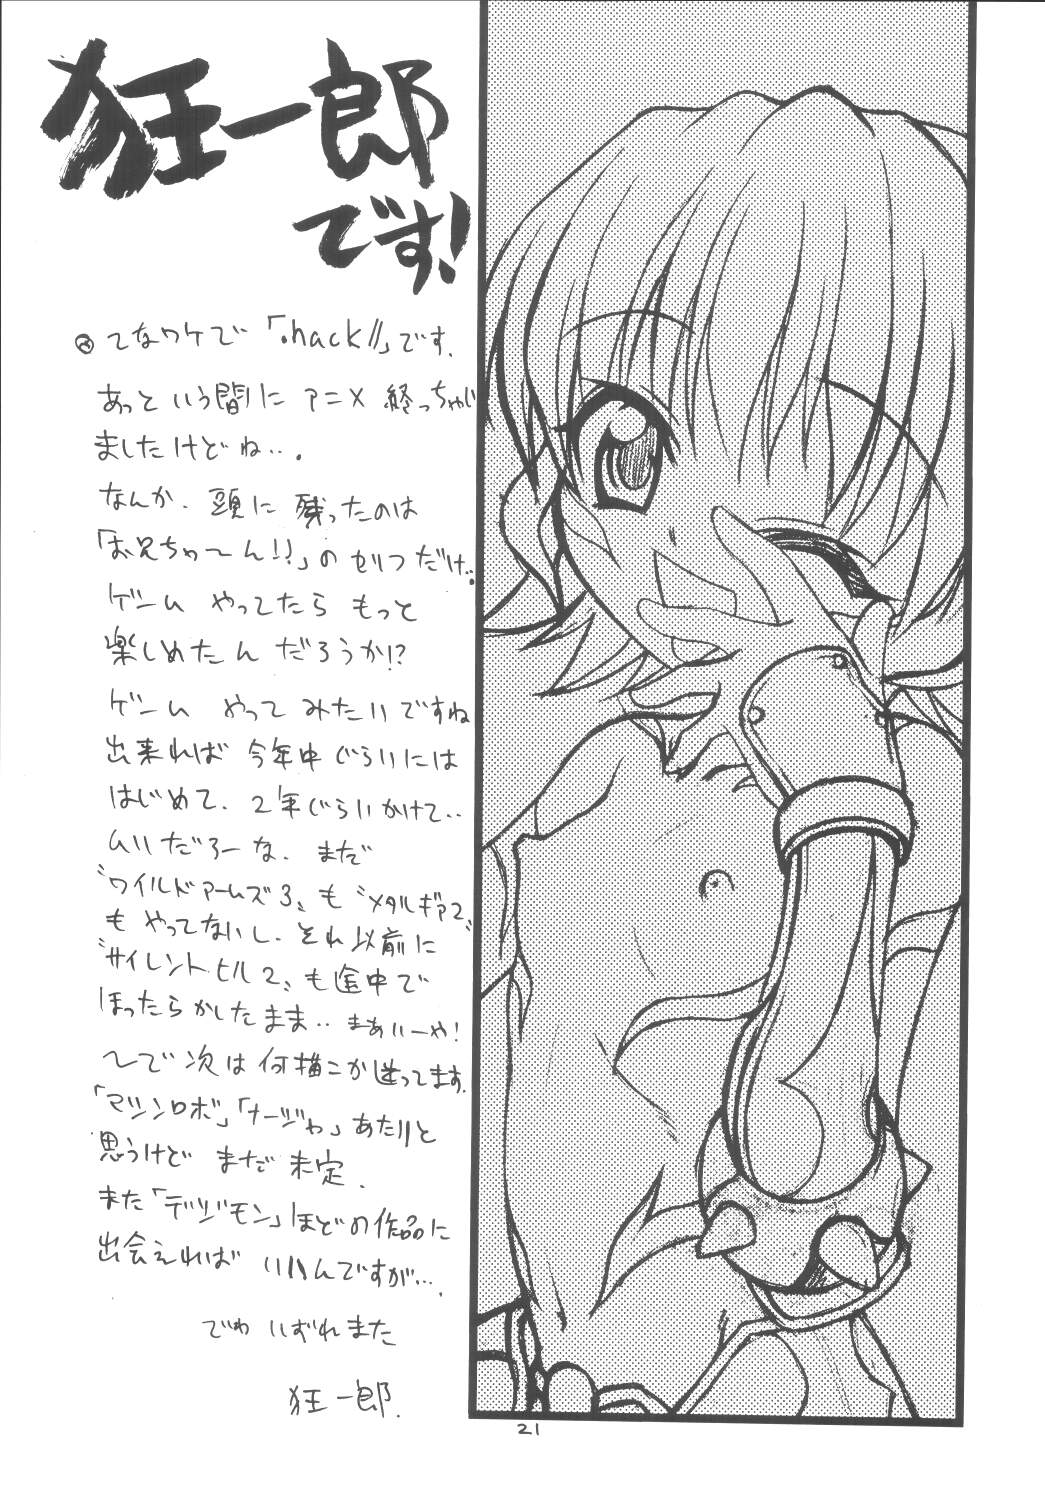 狂一郎
です!
てなワケで「.hack//」です.
あっという間に アニメ 終っちゃい
ましたけどね...
なんか. 頭に 残ったのは
「お兄ちゃ〜ん!?」の セリフ だけ..
ゲーム やってたら もっと
楽しめたんだろうか!?
ゲーム やって みたいですね
出来れば 今年中 ぐらいには
はじめて. 2年ぐらいかけて..
ムリだろーな. まだ
〝ワイルドアームズ3〟も〝メタルギア2〟
も やってないし. それ以前に
〝サイレントヒル2〟も途中で
ほったらかしたまま.. まあいーや!
〜で 次は 何描こか 迷ってます.
「マシンロボ」「ナージャ」あたりと
思うけど まだ 未定.
また「デジモン」ほどの作品に
出会えれば いいんですが....
でわ いずれまた
狂一郎.
21